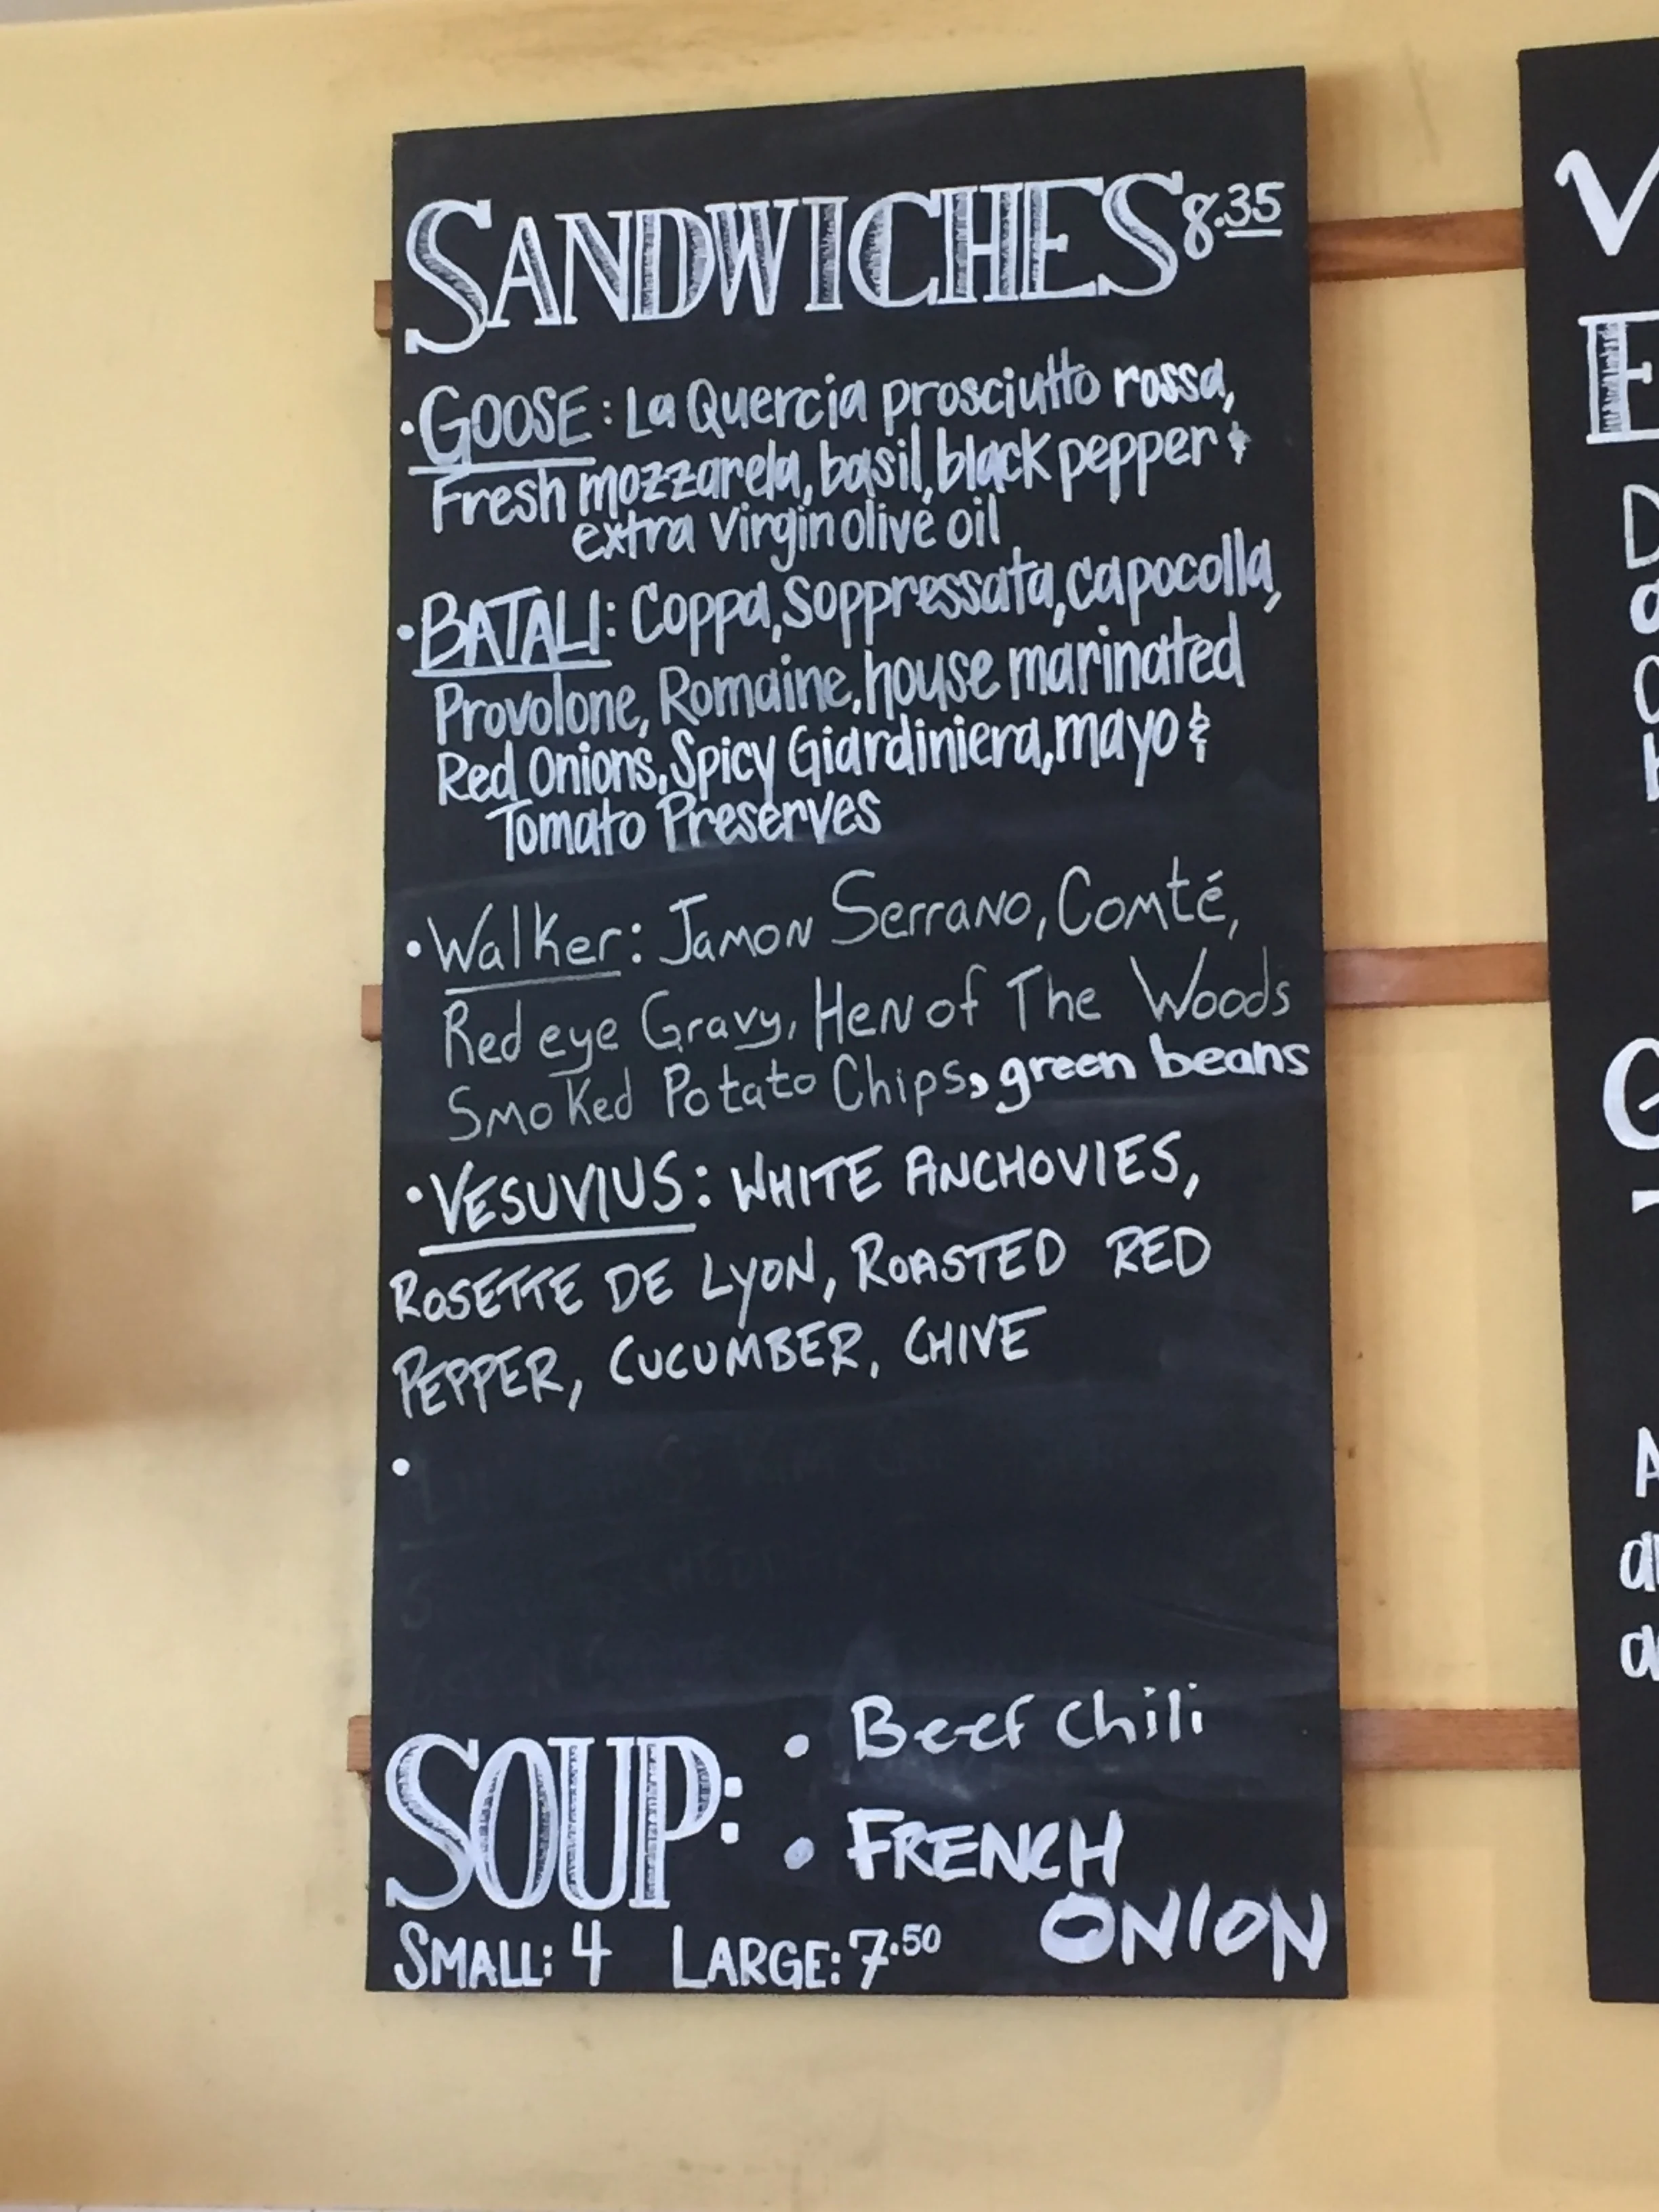 SANDWICHES 8.35
• GOOSE: La Quercia prosciutto rossa,
Fresh mozzarela, basil, black pepper &
extra virgin olive oil
• BATALI: Coppa, Soppressata, capocolla,
Provolone, Romaine, house marinated
Red Onions, Spicy Giardiniera, mayo &
Tomato Preserves
• Walker: Jamon Serrano, Comté,
Red eye Gravy, Hen of The Woods
Smoked Potato Chips, green beans
• VESUVIUS: WHITE ANCHOVIES,
ROSETTE DE LYON, ROASTED RED
PEPPER, CUCUMBER, CHIVE
•
SOUP: • Beef chili
• FRENCH
ONION
SMALL: 4 LARGE: 7.50